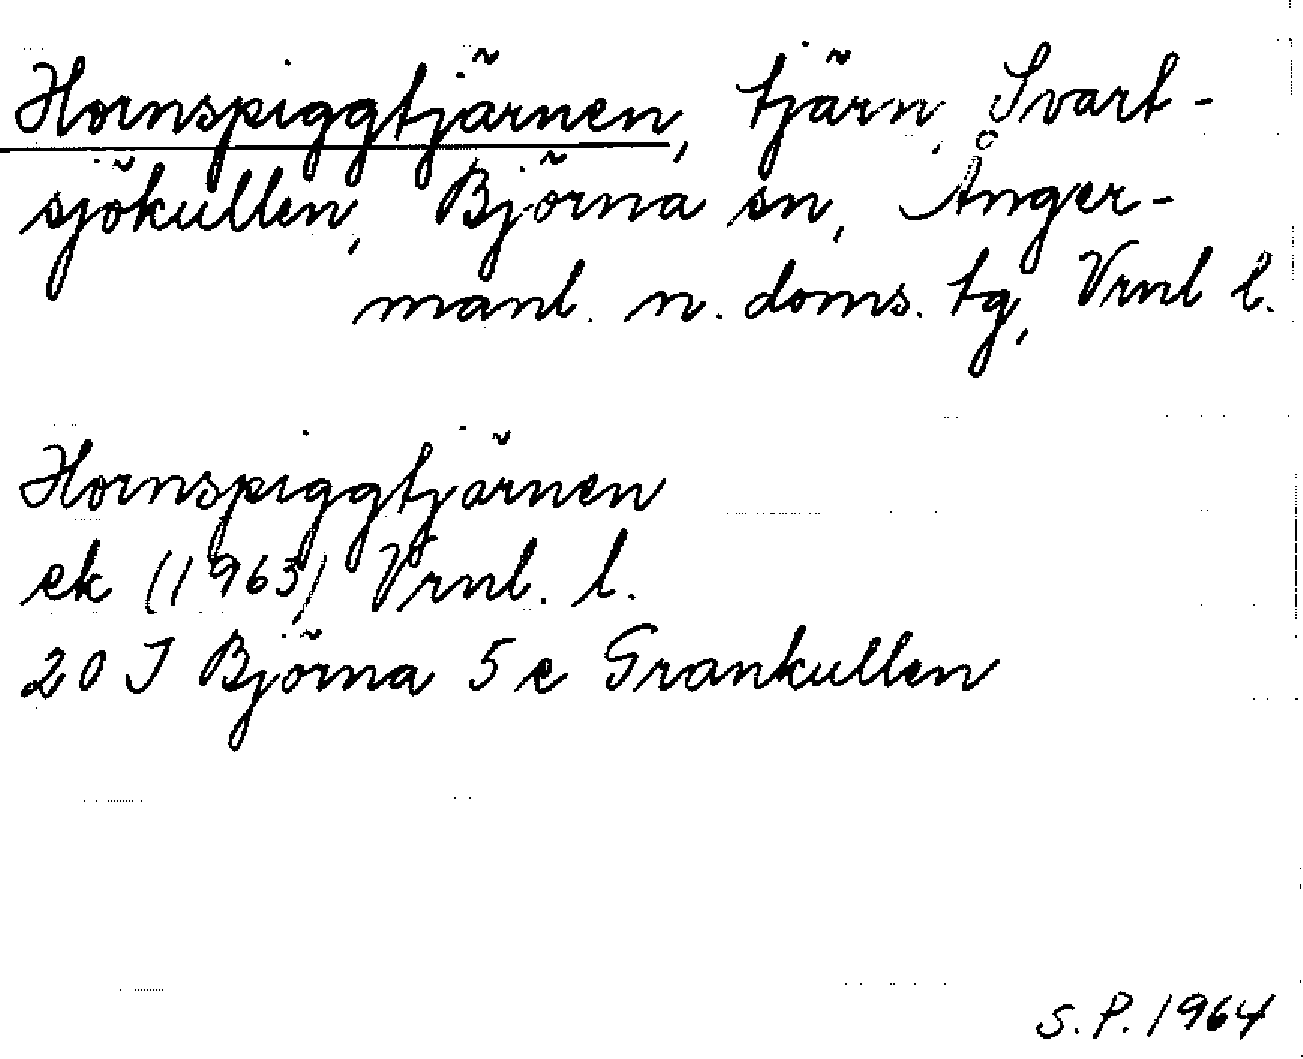 Hornspiggtjärnen, tjärn, Svart-
sjökullen, Björna sn, Ånger-
manl. n. doms. tg, Vrnl l.
Hornspiggtjärnen
ek (1963) Vrnl. l.
20 I Björna 5 e Grankullen
S. P. 1964